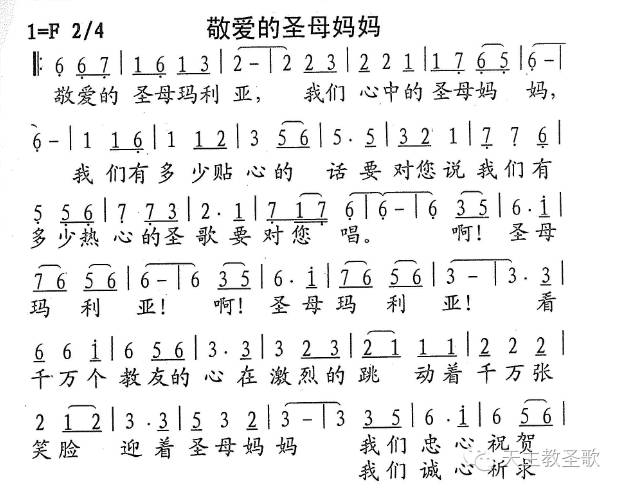 敬爱的圣母妈妈
1=F 2/4
‖: 6̣ 6̣ 7̣ | 1 6̣ 1 3 | 2 - | 2 2 3 | 2 2 1 | 1 7̣ 6̣ 5̣ | 6̣ - |
敬爱的 圣母玛利 亚, 我们 心中的圣母妈 妈,
6̣ - | 1 1 6̣ | 1 1 2 | 3 5 6 | 5 . 5 | 3 2 1 | 7̣ 7̣ 6̣ |
我 们有多 少贴 心的 话要 对您 说我 们有
5̣ 5̣ 6̣ | 7̣ 7̣ 3 | 2 . 1 | 7̣ 1 7̣ | 6̣ | 6̣ - | 6̣ 3 5 | 6 . i |
多少热 心的圣 歌要 对您 唱。 啊! 圣母
7 6 5 6 | 6 - | 6 3 5 | 6 . i | 7 6 5 6 | 3 - | 3 . 3 |
玛 利 亚! 啊! 圣母玛 利 亚! 看
6 6 i | 6 5 6 | 3 . 3 | 3 2 3 | 2 1 1 1 | 2 2 2 |
千万个 教友的 心在 激烈的 跳 动着 千万张
2 1 2 | 3 . 3 | 5 3 2 | 3 - | 3 3 5 | 6 . i | 6 5 6 |
笑脸 迎着 圣母妈 妈 我们 忠心 祝贺
我们 诚心 祈求
天主教圣歌